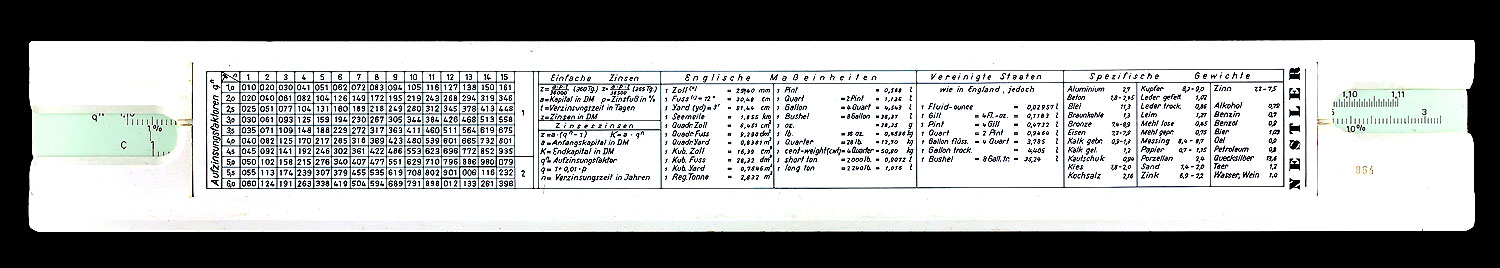 Aufzinsungsfaktoren qⁿ
1 2 3 4 5 6 7 8 9 10 11 12 13 14 15
1,0 010 020 030 041 051 062 072 083 094 105 116 127 138 150 161
2,0 020 040 061 082 104 126 149 172 195 219 243 268 294 319 346
2,5 025 051 077 104 131 160 189 218 249 280 312 345 378 413 448
3,0 030 061 093 125 159 194 230 267 305 344 384 426 468 513 558
3,5 035 071 109 148 188 229 272 317 363 411 460 511 564 619 675
4,0 040 082 125 170 217 265 316 369 423 480 539 601 665 732 801
4,5 045 092 141 192 246 302 361 422 486 553 623 696 772 852 935
5,0 050 102 158 215 276 340 407 477 551 629 710 796 886 980 079
5,5 055 113 174 239 307 379 455 535 619 708 802 901 006 116 232
6,0 060 124 191 262 338 419 504 594 689 791 898 012 133 261 396
1
2
Einfache Zinsen
a=Kapital in DM p=Zinsfuß in %
t=Verzinsungszeit in Tagen
z=Zinsen in DM
Zinseszinsen
z=a·(qⁿ-1) K=a·qⁿ
a=Anfangskapital in DM
K=Endkapital in DM
qⁿ= Aufzinsungsfaktor
q=1+0,01·p
n= Verzinsungszeit in Jahren
Englische Maßeinheiten
1 Zoll (") = 25,40 mm
1 Fuss (')=12" = 30,48 cm
1 Yard (yd)=3' = 91,44 cm
1 Seemeile = 1,855 km
1 Quadr.Zoll = 6,451 cm²
1 Quadr.Fuss = 9,288 dm²
1 Quadr.Yard = 0,8361 m²
1 Kub. Zoll = 16,39 cm³
1 Kub. Fuss = 28,32 dm³
1 Kub. Yard = 0,7646 m³
1 Reg.Tonne = 2,832 m³
1 Pint = 0,568 l
1 Quart =2Pint = 1,136 l
1 Gallon =4Quart = 4,543 l
1 Bushel =8Gallon = 36,37 l
1 oz. = 28,35 g
1 lb. = 16 oz. = 0,4536 kg
1 Quarter = 28 lb. = 12,70 kg
1 cent-weight(cwt)=4Quarter = 50,80 kg
1 short ton = 2000 lb. = 0,9072 t
1 long ton = 2240 lb. = 1,016 t
Vereinigte Staaten
wie in England, jedoch
1 Fluid-ounce = 0,02957 l
1 Gill = 4Fl.-oz. = 0,1183 l
1 Pint = 4 Gill = 0,4732 l
1 Quart = 2 Pint = 0,9464 l
1 Gallon flüss. = 4 Quart = 3,785 l
1 Gallon trock. = 4,405 l
1 Bushel = 8Gall.tr. = 35,24 l
Spezifische Gewichte
Aluminium 2,7 Kupfer 8,2-9,0 Zinn 7,2-7,5
Beton 1,8-2,45 Leder gefett 1,02
Blei 11,3 Leder trock. 0,86 Alkohol 0,79
Braunkohle 1,3 Leim 1,27 Benzin 0,7
Bronze 7,4-8,9 Mehl lose 0,45 Benzol 0,9
Eisen 7,2-7,9 Mehl gepr. 0,75 Bier 1,03
Kalk gebr. 0,9-1,3 Messing 8,4-8,7 Oel 0,9
Kalk gel. 1,2 Papier 0,7-1,15 Petroleum 0,8
Kautschuk 0,94 Porzellan 2,4 Quecksilber 13,6
Kies 1,8-2,0 Sand 1,4-2,0 Teer 1,2
Kochsalz 2,16 Zink 6,9-7,2 Wasser, Wein 1,0
NESTLER
qⁿ
1%
C
1
1,10 1,11
3
10%
864